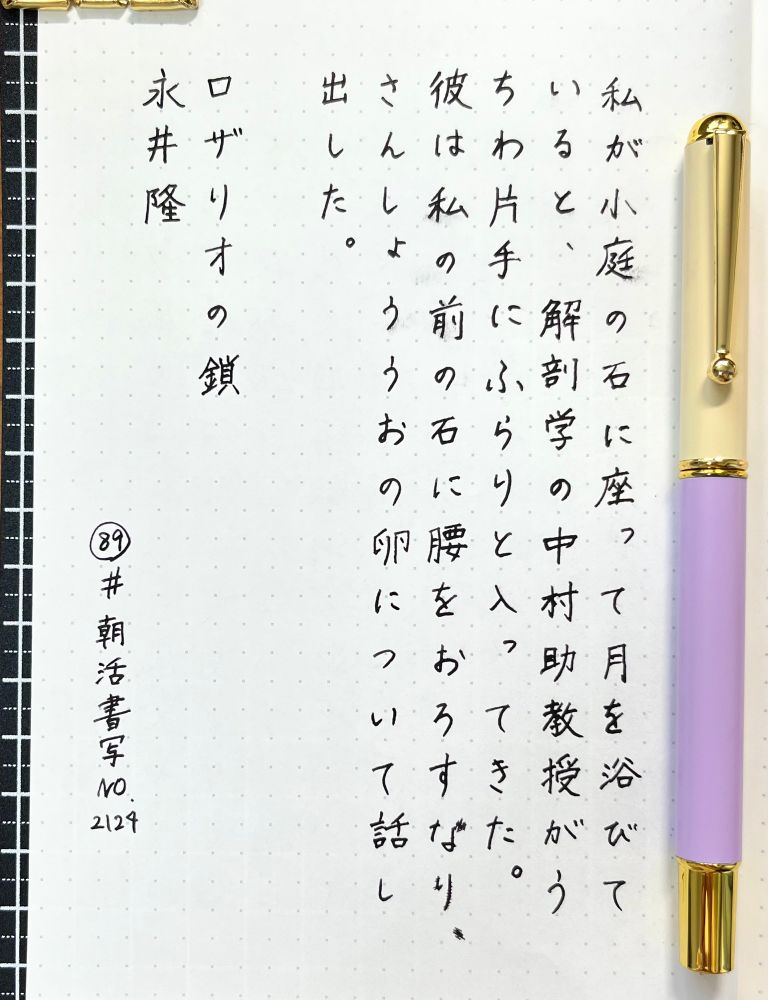 私が小庭の石に座って月を浴びて
いると、解剖学の中村助教授がう
ちわ片手にふらりと入ってきた。
彼は私の前の石に腰をおろすなり、
さんしょううおの卵について話し
出した。
ロザリオの鎖
永井隆
89
#朝活書写
NO.
2124